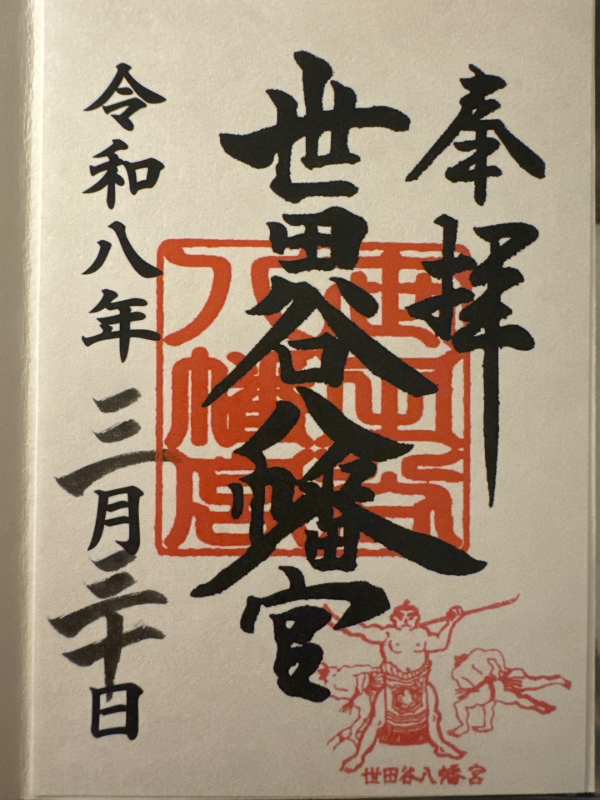 奉拝
世田谷八幡宮
令和八年三月三十日
世田谷
八幡宮
世田谷八幡宮